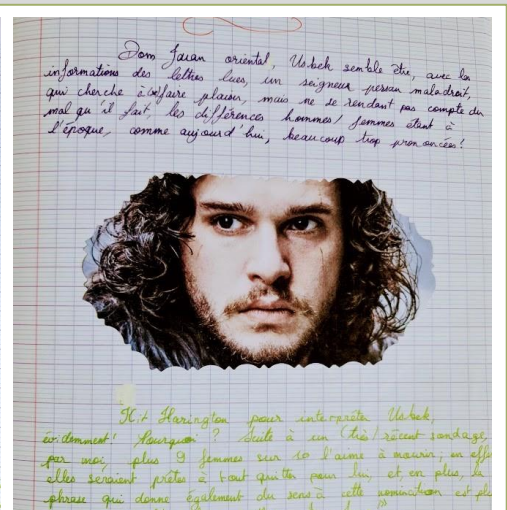 Dom Juan oriental, Usbek semble être, avec les
informations des lettres lues, un seigneur persan maladroit,
qui cherche à faire plaisir, mais ne se rendant pas compte du
mal qu'il fait, les différences hommes/femmes étant à
l'époque, comme aujourd'hui, beaucoup trop prononcées!
Kit Harington pour interpréter Usbek,
évidemment! Pourquoi? Suite à un (très) récent sondage,
par moi, plus 9 femmes sur 10 l'aime à mourir; en effe
elles seraient prêtes à tout quitter pour lui, et, en plus, la
phrase qui donne également du sens à cette nomination est plu